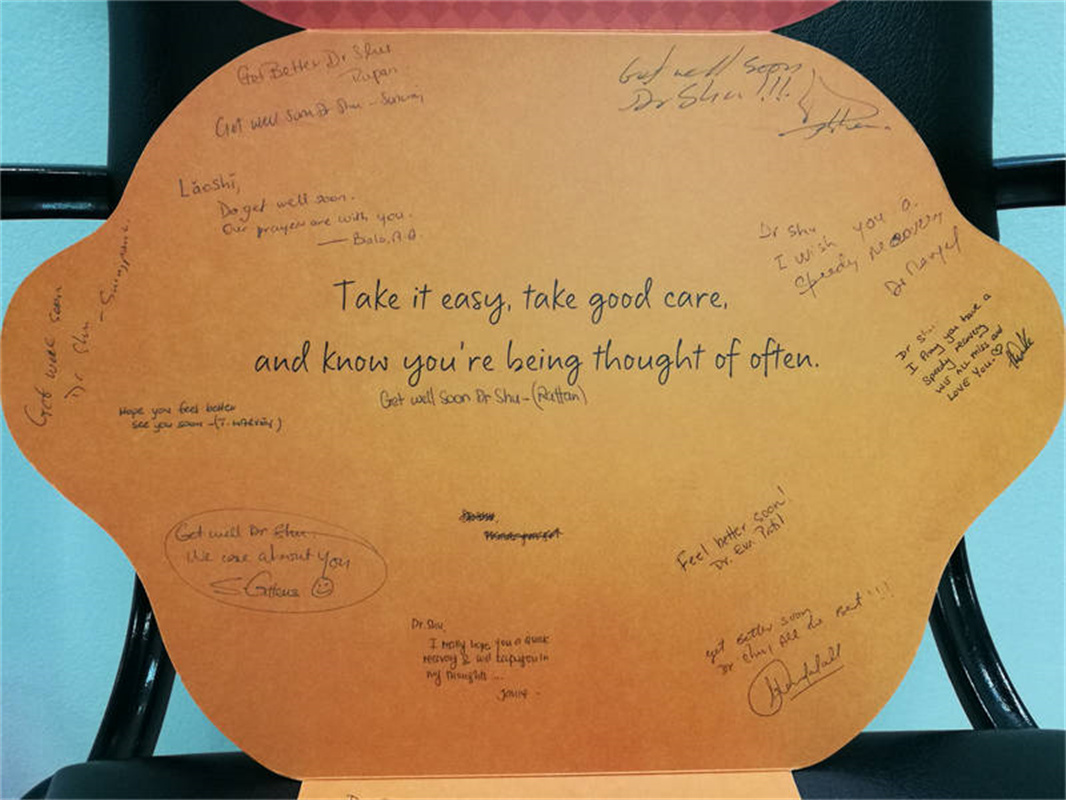 Get Better Dr Shu
Rupan
Get well soon Dr Shu -
Get well soon
Dr Shu !!!
Lǎoshī,
Do get well soon.
Our prayers are with you.
— Bala, A.A.
Dr Shu
I wish you a
Speedy recovery
Dr
Take it easy, take good care,
and know you're being thought of often.
Get well soon Dr Shu - (Rattan)
Dr Shu
I Pray you have a
Speedy recovery
We All miss and
Love You.
Get well soon
Dr Shu -
Hope you feel better
see you soon -
Get well Dr Shu
We care about you
Feel better soon!
Dr. Patil
Dr. Shu,
I really hope you a quick
recovery & will keep you in
my thoughts ...
get better soon
Dr Shu, All de Best !!!